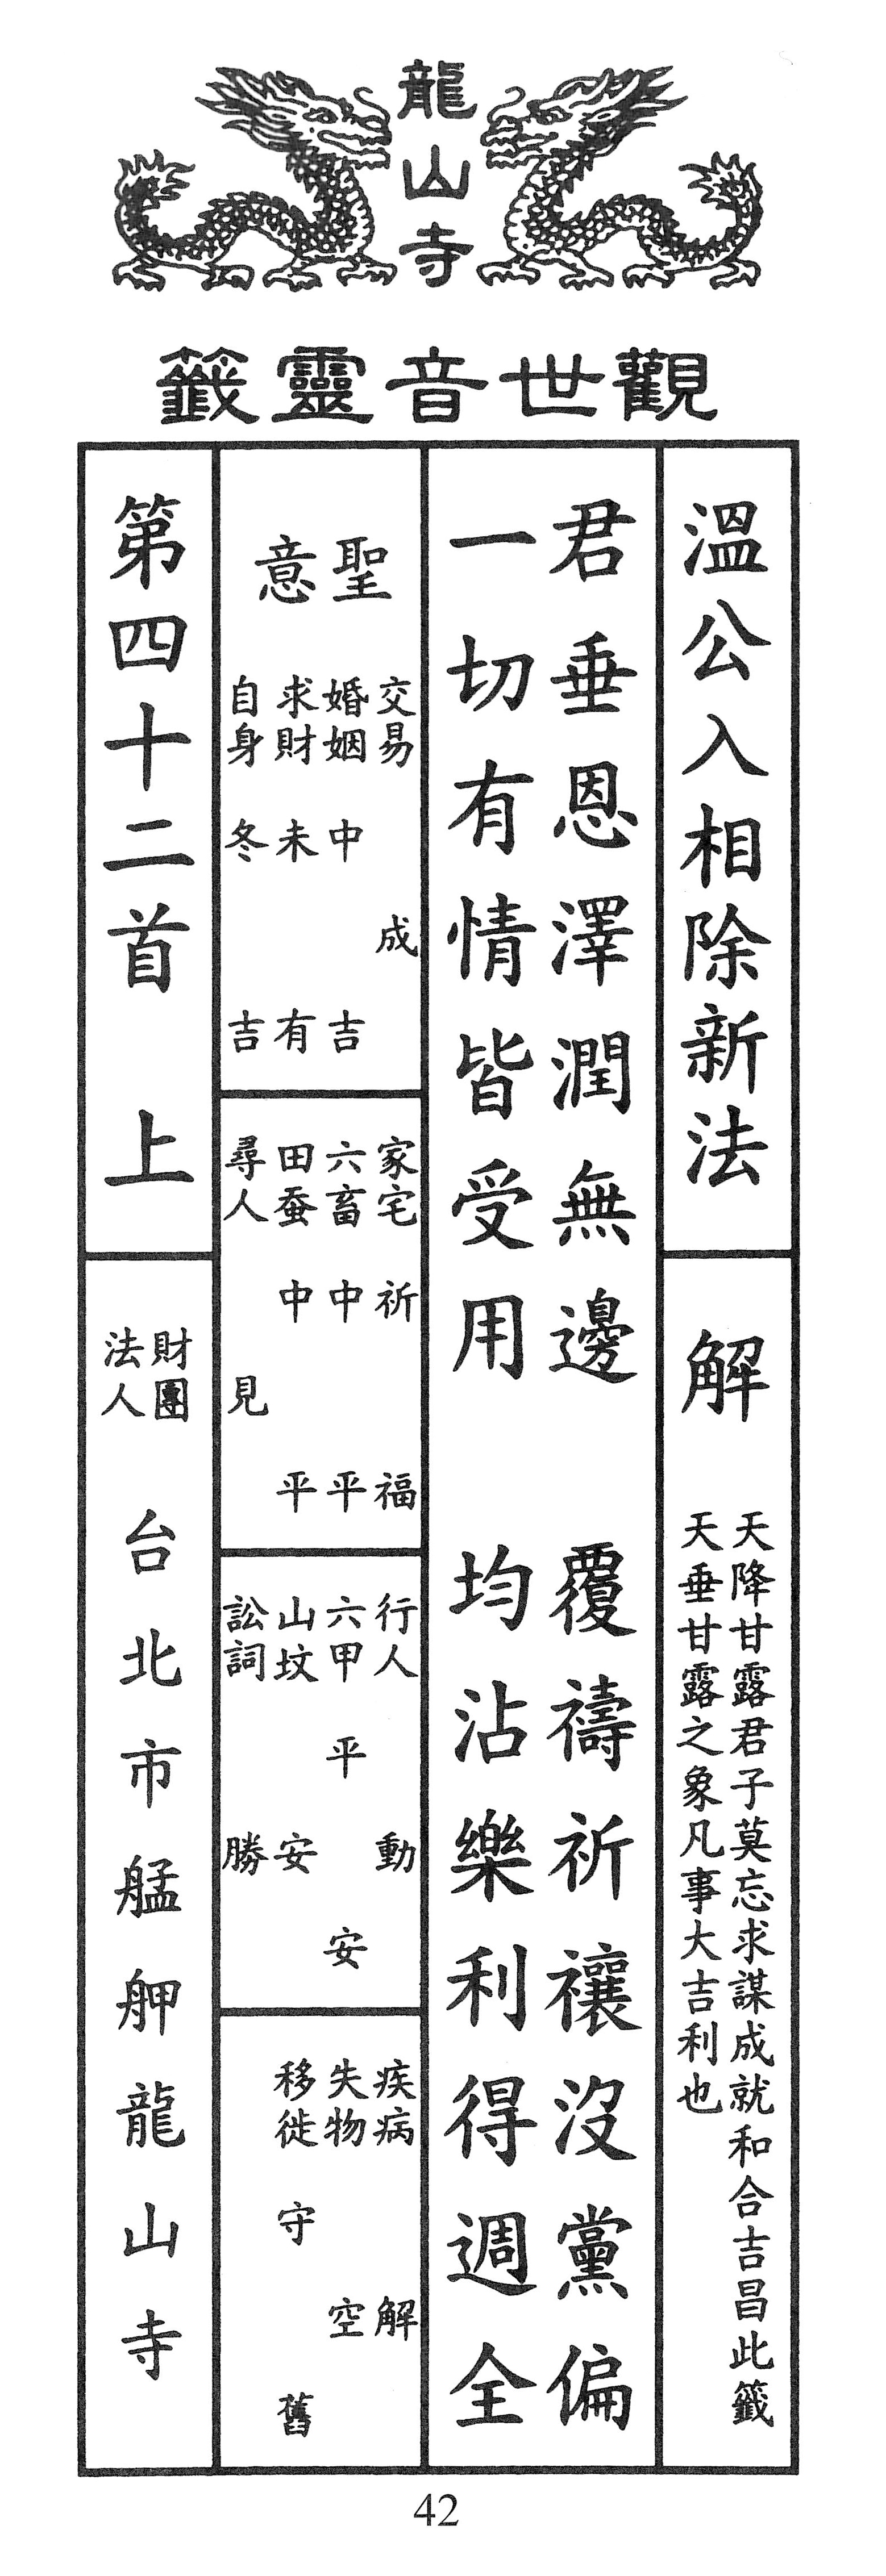 龍山寺
觀世音靈籤
溫公入相除新法
解
天降甘露君子莫忘求謀成就和合吉昌此籤
天垂甘露之象凡事大吉利也
君垂恩澤潤無邊 覆禱祈禳沒黨偏
一切有情皆受用 均沾樂利得週全
聖意
交易 成
婚姻 中吉
求財 未有
自身 冬吉
家宅 祈福
六畜 中平
田蚕 中平
尋人 見
行人 動
六甲 平安
山坟 安
訟詞 勝
疾病 解
失物 空
移徙 守舊
第四十二首 上
財團法人 台北市艋舺龍山寺
42